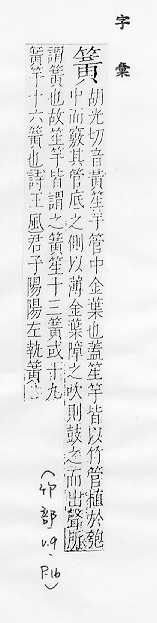 字彙
簧 胡光切音黃笙竽管中金葉也蓋笙竽皆以竹管植於匏
中而竅其管底之側以薄金葉障之吹則鼓之而出聲所
謂簧也故笙竽皆謂之簧笙十三簧或十九
簧竽十六簧也詩王風君子陽陽左執簧
(竹部 v.9. P.16)